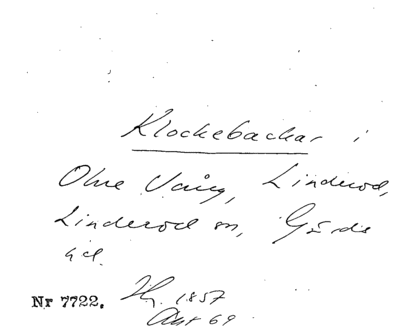 Klockebackar i
Ohne Vång, Linderöd,
Linderöd sn, Gärds
hd.
Nr 7722. Hg. 1857
Akt 69